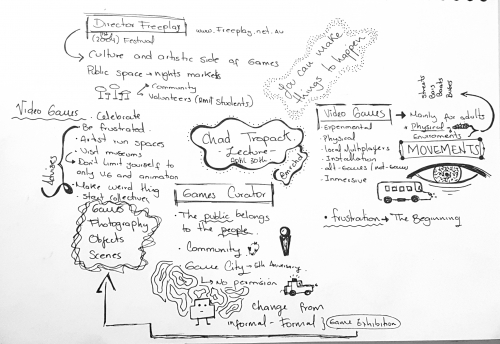 Director Freeplay
www.Freeplay.net.au
(2004) Festival
Culture and artistic side of Games
Public space → nights markets
Community
Volunteers (RMIT students)
You can make
things to happen
Video Games
• Celebrate
• Be frustrated
• Artist run spaces
• Visit museums
Don't limit yourself to
only VG and animation
• Make weird thing
• Start collectives
Advises
Games
Photography
Objects
Scenes
Chad Toprack
- Lecture -
April 30th
Games Curator
• The public belongs
to the people
• Community
• Game City → 5th Anniversary
↳ No permission
change from
informal - Formal } Game Exhibition
Video Games → Mainly for adults
• Experimental
• Physical
• Local Multiplayers
• Installation
• alt-Games / not-Games
• Inmersive
• Physical
Environments
Streets
Bars
Boats
Bikes
MOVEMENTS
• frustration → The Beginning